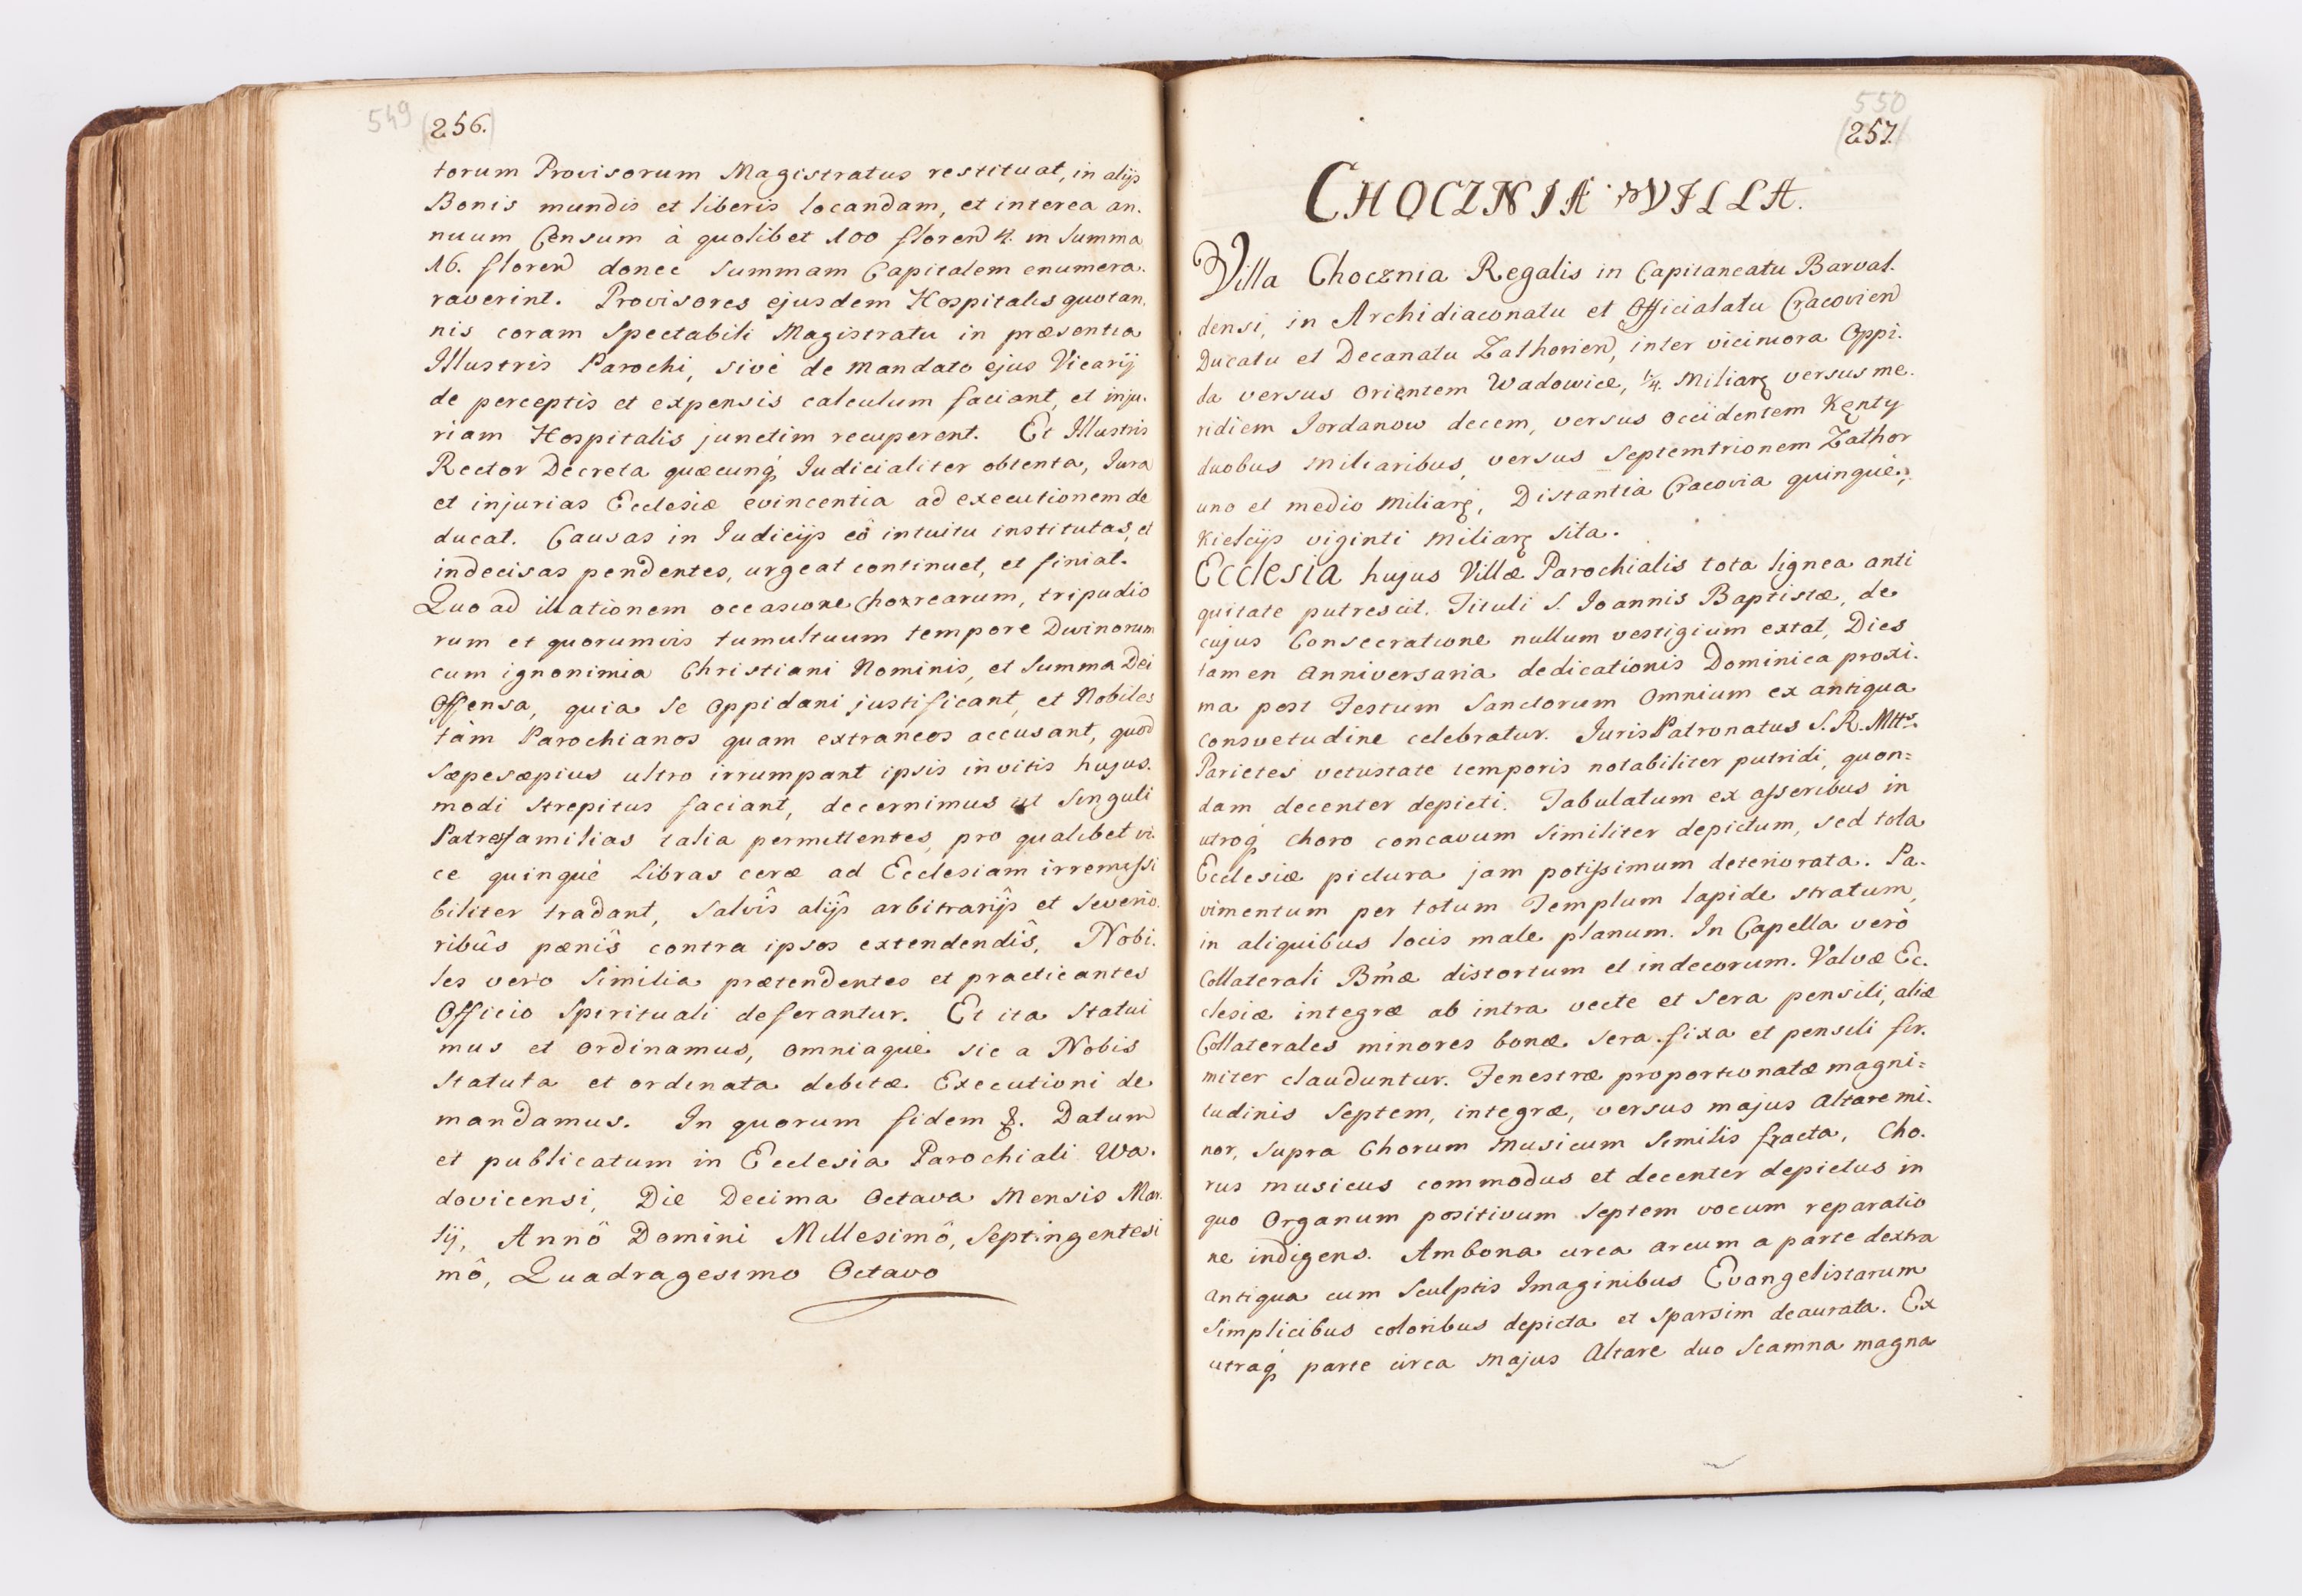 549 (256.)
torum Provisorum Magistratus restituat, in alijs
Bonis mundis et liberis locandam, et interea an-
nuum Censum à quolibet 100 floren 4. in Summa
16. floren donec Summam Capitalem enumera-
raverint. Provisores ejusdem Hospitalis quotan-
nis coram Spectabili Magistratu in præsentia
Illustris Parochi, sivè de mandato ejus Vicarij
de perceptis et expensis calculum faciant, et inju-
riam Hospitalis junctim recuperent. Et Illustris
Rector Decreta quæcunq Iudicialiter obtenta, Iura
et injurias Ecclesiæ evincentia ad executionem de
ducat. Causas in Iudicijs eô intuitu institutas, et
indecisas pendentes, urgeat continuet, et finiat.
Quo ad illationem occasione Chorearum, tripudio
rum et quorumvis tumultuum tempore Divinorum
cum ignonimia Christiani Nominis, et Summa Dei
Offensa, quia se Oppidani justificant, et Nobiles
tàm Parochianos quam extraneos accusant, quod
sæpesæpius ultro irrumpant ipsis invitis hujus-
modi strepitus faciant, decernimus ut Singuli
Patresfamilias talia permittentes, pro qualibet vi-
ce quinquè Libras ceræ ad Ecclesiam irremissi
biliter tradant, Salvîs alijs arbitrarijs et Severio-
ribûs pænîs contra ipsos extendendîs, Nobi-
les verò Similia prætendentes et practicantes
Officio Spirituali deferantur. Et ita Statui
mus et Ordinamus, Omniaquè sic a Nobis
Statuta et ordinata debitæ Executioni de
mandamus. In quorum fidem &. Datum
et publicatum in Ecclesia Parochiali Wa-
dovicensi, Die Decima Octava Mensis Mar-
tij, Annô Domini Millesimô, Septingentesi
mô, Quadragesimo Octavo
550
(257.)
CHOCZNIA VILLA.
Villa Chocznia Regalis in Capitaneatu Barval-
densi, in Archidiaconatu et Officialatu Cracovien
Ducatu et Decanatu Zathorien, inter viciniora Oppi-
da versus Orientem Wadowice, 1/4. Miliarę versus me-
ridiem Jordanow decem, versus Occidentem Kęnty
duobus Miliaribus, versus Septemtrionem Zathor
uno et medio Miliarę, Distantia Cracovia quinquè,
Kielcijs viginti Miliarę Sita.
Ecclesia hujus Villæ Parochialis tota lignea anti
quitate putrescit. Tituli S. Ioannis Baptistæ, de
cujus Consecratione nullum vestigium extat, Dies
tamen Anniversaria dedicationis Dominica proxi-
ma post Festum Sanctorum Omnium ex antiqua
consvetudine celebratur. Juris Patronatus S. R. Mtts.
Parietes vetustate temporis notabiliter putridi, quon=
dam decenter depicti. Tabulatum ex asseribus in
utroq choro concavum Similiter depictum, sed tota
Ecclesiæ pictura jam potissimum deteriorata. Pa-
vimentum per totum Templum lapide stratum,
in aliquibus locis male planum. In Capella verò
Collaterali Bmæ distortum et indecorum. Valvæ Ec-
clesiæ integræ ab intra vecte et Sera pensili, aliæ
Collaterales minores bonæ Sera fixa et pensili fir-
miter clauduntur. Fenestræ proportionatæ magni=
tudinis Septem, integræ, versus majus Altare mi-
nor, Supra Chorum Musicum Similis fracta, Cho-
rus musicus commodus et decenter depictus in
quo Organum positivum Septem vocum reparatio
ne indigens. Ambona circa arcum a parte dextra
antiqua cum Sculptis Imaginibus Evangelistarum
Simplicibus coloribus depicta et Sparsim deaurata. Ex
utraq parte circa Majus Altare duo Scamna magna